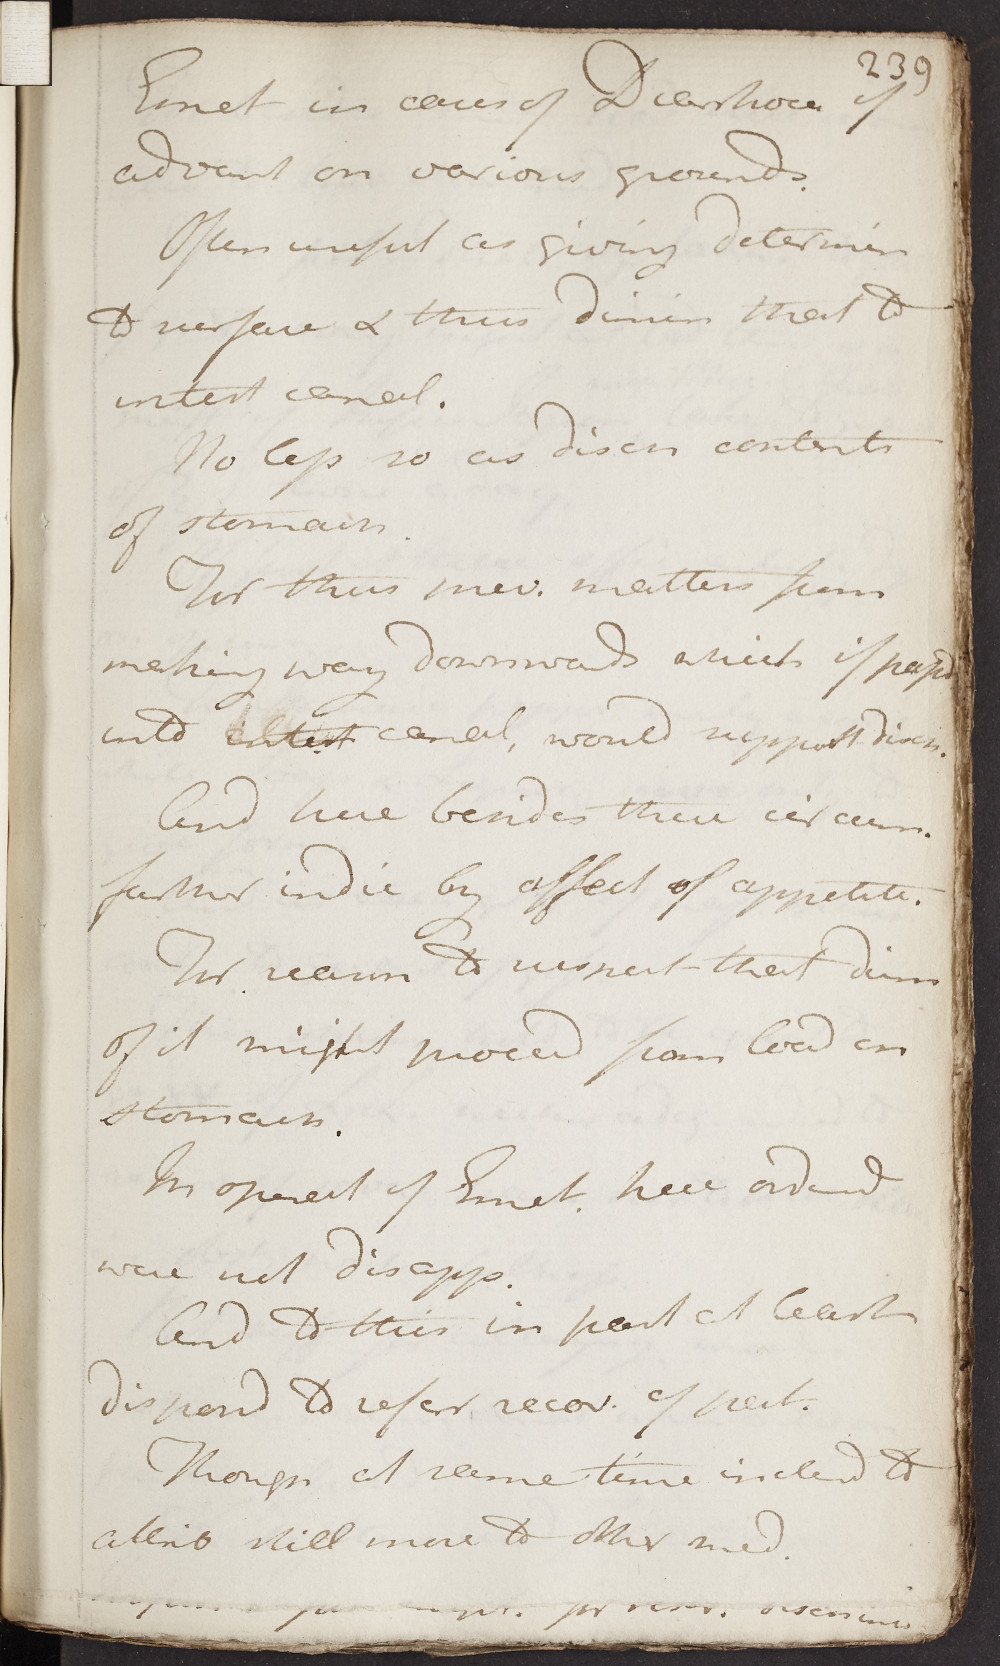 239
Emet in cases of Diarrhoea of
advant on various grounds.
Often useful as giving determin
to surface & thus dimin that to
intest canal.
No less so as disch contents
of stomach.
For thus prev. matters from
making way downwards which if passd
into intest canal, would support disch.
And here besides these circum.
further indic by affect of appetite.
For reason to suspect that dimn
of it might proceed from load on
stomach.
In operat of Emet. here ordered
were not disapp.
And to this in part at least
disposd to refer recov. of pat.
Though at same time inclind to
attrib still more to other med.